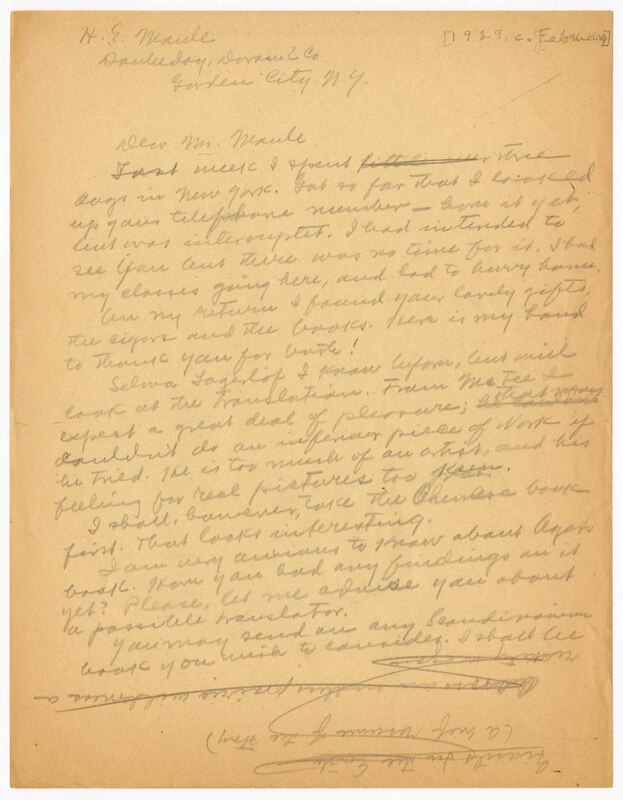 H. E. Maule
[1929. c. February]
Doubleday, Doran & Co
Garden City N.Y.
Dear Mr. Maule
Last week I spent three
days in New York. Got so far that I looked
up your telephone number — have it yet,
but was interruptet. I had intended to
see you but there was no time for it. I had
my classes going here, and had to hurry home.
On my return I found your lovely gifts,
the cigars and the books. Here is my hand
to thank you for both!
Selma Lagerlof I know before, but will
look at the translation. From McFee I
expect a great deal of pleasure; that man
couldn't do an inferior piece of work if
he tried. He is too much of an artist, and his
feeling for real pictures too keen.
I shall, however, take the Chenese book
first. That looks interesting.
I am very anxious to know about Ager's
book. Have you had any findings on it
yet? Please, let me advise you about
a possible translator.
You may send on any Scandinavian
book you wish to consider. I shall be
(A brief resume of the story)
Giants in the Earth